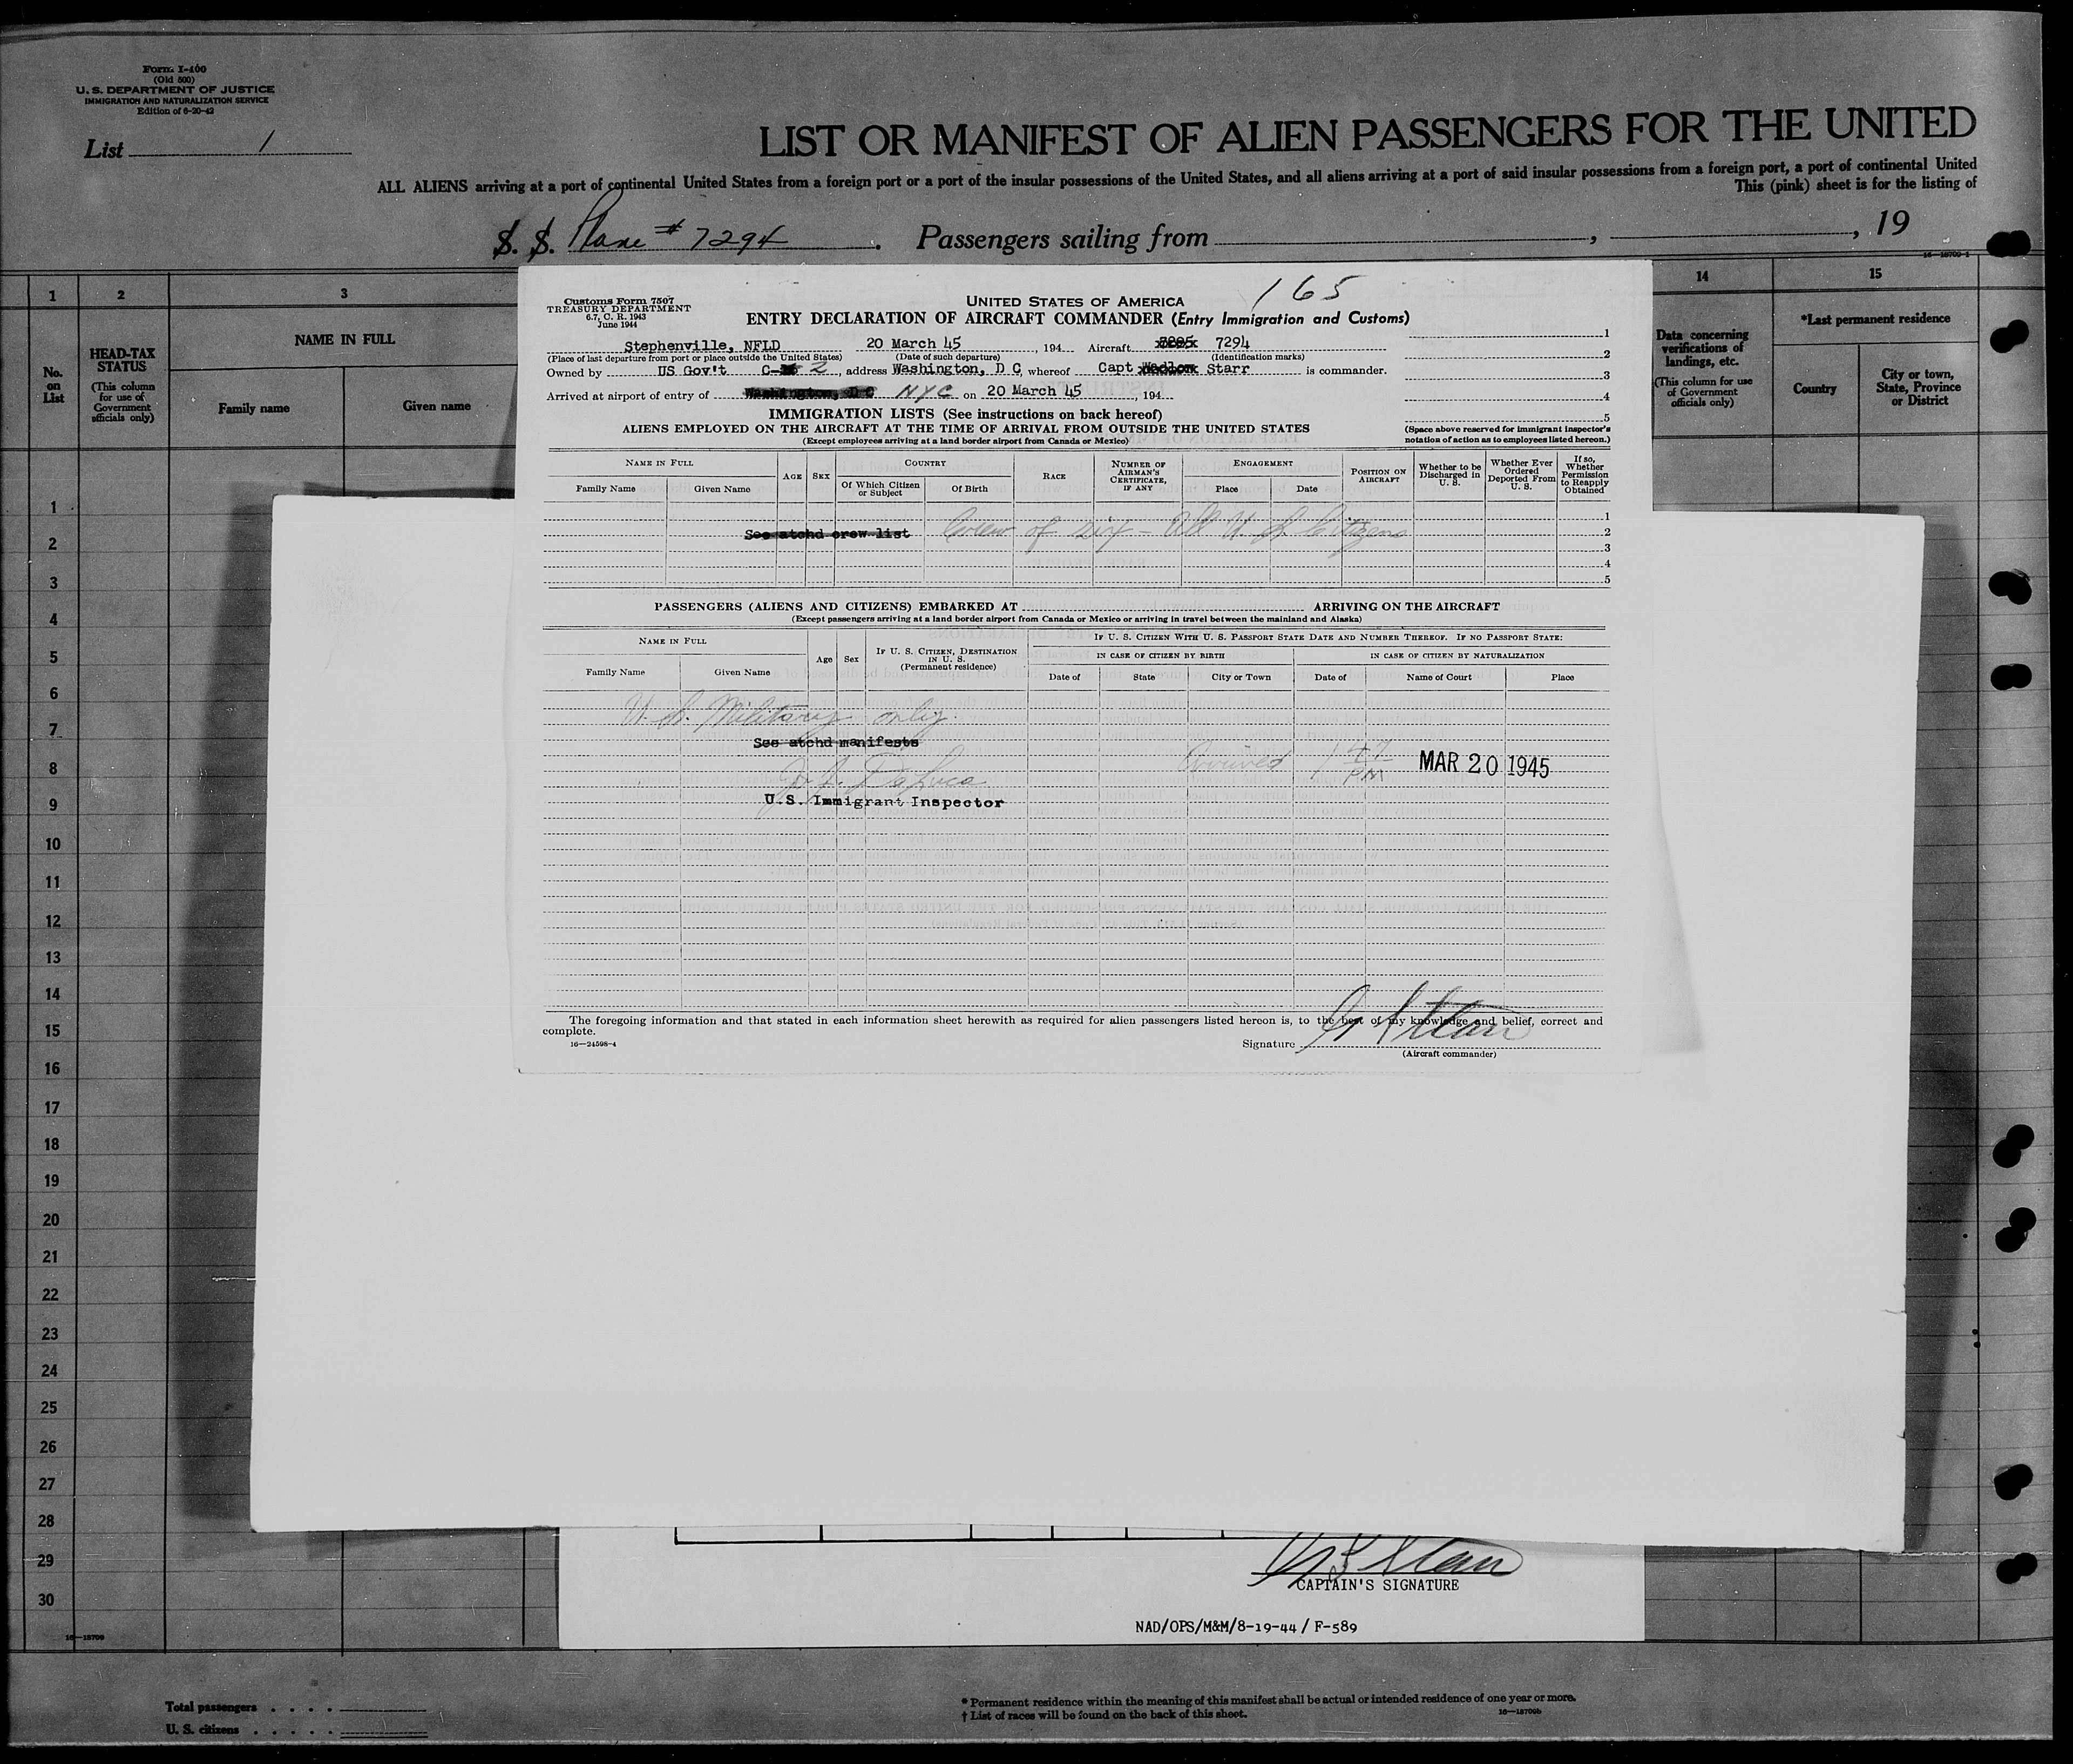 Form I-400
(Old 500)
U. S. DEPARTMENT OF JUSTICE
IMMIGRATION AND NATURALIZATION SERVICE
Edition of 6-20-42
List 1
LIST OR MANIFEST OF ALIEN PASSENGERS FOR THE UNITED
ALL ALIENS arriving at a port of continental United States from a foreign port or a port of the insular possessions of the United States, and all aliens arriving at a port of said insular possessions from a foreign port, a port of continental United
This (pink) sheet is for the listing of
S. S. Plane # 7294 . Passengers sailing from , , 19
1 2 3 14 15
No. on List
HEAD-TAX STATUS
(This column for use of Government officials only)
NAME IN FULL
Family name Given name
Data concerning verifications of landings, etc.
(This column for use of Government officials only)
*Last permanent residence
Country
City or town, State, Province or District
165
Customs Form 7507
TREASURY DEPARTMENT
6.7, C. R. 1943
June 1944
UNITED STATES OF AMERICA
ENTRY DECLARATION OF AIRCRAFT COMMANDER (Entry Immigration and Customs)
Stephenville, NFLD 20 March 45, 194 Aircraft 7294
(Place of last departure from port or place outside the United States) (Date of such departure) (Identification marks)
Owned by US Gov't C- 2, address Washington, D C, whereof Capt Starr is commander.
Arrived at airport of entry of Washington, D C NYC on 20 March 45, 194
1
2
3
4
5
IMMIGRATION LISTS (See instructions on back hereof)
ALIENS EMPLOYED ON THE AIRCRAFT AT THE TIME OF ARRIVAL FROM OUTSIDE THE UNITED STATES
(Except employees arriving at a land border airport from Canada or Mexico)
(Space above reserved for immigrant inspector's notation of action as to employees listed hereon.)
NAME IN FULL
Family Name Given Name
AGE SEX
COUNTRY
Of Which Citizen or Subject Of Birth
RACE
NUMBER OF AIRMAN'S CERTIFICATE, IF ANY
ENGAGEMENT
Place Date
POSITION ON AIRCRAFT
Whether to be Discharged in U. S.
Whether Ever Ordered Deported From U. S.
If so, Whether Permission to Reapply Obtained
See atchd crew list Crew of six - All U. S. Citizens
1
2
3
4
5
PASSENGERS (ALIENS AND CITIZENS) EMBARKED AT ARRIVING ON THE AIRCRAFT
(Except passengers arriving at a land border airport from Canada or Mexico or arriving in travel between the mainland and Alaska)
NAME IN FULL
Family Name Given Name
Age Sex
IF U. S. CITIZEN, DESTINATION IN U. S.
(Permanent residence)
IF U. S. CITIZEN WITH U. S. PASSPORT STATE DATE AND NUMBER THEREOF. IF NO PASSPORT STATE:
IN CASE OF CITIZEN BY BIRTH IN CASE OF CITIZEN BY NATURALIZATION
Date of State City or Town Date of Name of Court Place
U. S. Military only.
See atchd manifests
Arrived 1 47 PM MAR 20 1945
DeLuca
U.S. Immigrant Inspector
The foregoing information and that stated in each information sheet herewith as required for alien passengers listed hereon is, to the best of my knowledge and belief, correct and
complete.
16—24598-4
Signature Starr
(Aircraft commander)
1
2
3
4
5
6
7
8
9
10
11
12
13
14
15
16
17
18
19
20
21
22
23
24
25
26
27
28
29
30
Starr
CAPTAIN'S SIGNATURE
NAD/OPS/M&M/8-19-44 / F-589
16—18709
Total passengers
U. S. citizens
* Permanent residence within the meaning of this manifest shall be actual or intended residence of one year or more.
† List of races will be found on the back of this sheet.
16—18709b